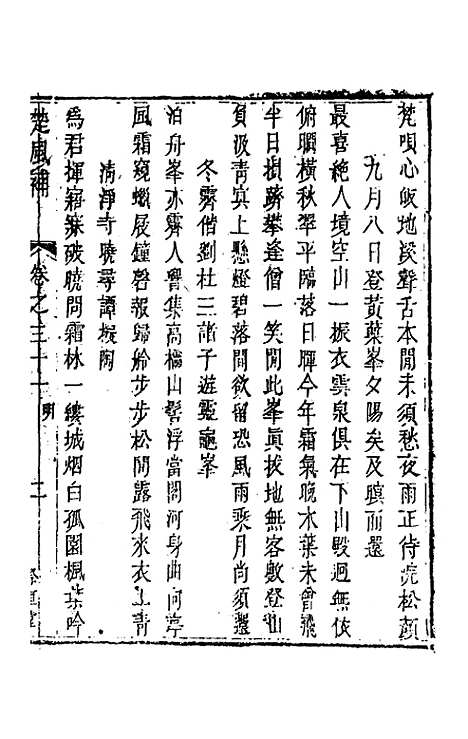 梵唄心皈地溪聲舌本聞未須愁夜雨正待洗松顏
九月八日登黃葉峯夕陽矣及暝而還
最喜絶人境空山一振衣雲泉俱在下山殿迥無依
俯瞯橫秋翠平臨落日暉今年霜氣晚木葉未曾飛
半日損躋攀逢僧一笑閒此峯眞拔地無客敢登山
負汲靑冥上懸燈碧落間欲留恐風雨乘月尚須還
冬霽偕劉杜三諸子遊靈龜峯
泊舟峯亦霽人響集高檣山髻浮當閣河身曲向亭
風霜窺蠟屐鐘磬報歸舲步步松間露飛來衣上靑
淸淨寺曉尋譚擬陶
爲君揮寤寐破曉問霜林一縷城烟白孤園楓葉吟
楚風補 卷之三十一 明 二